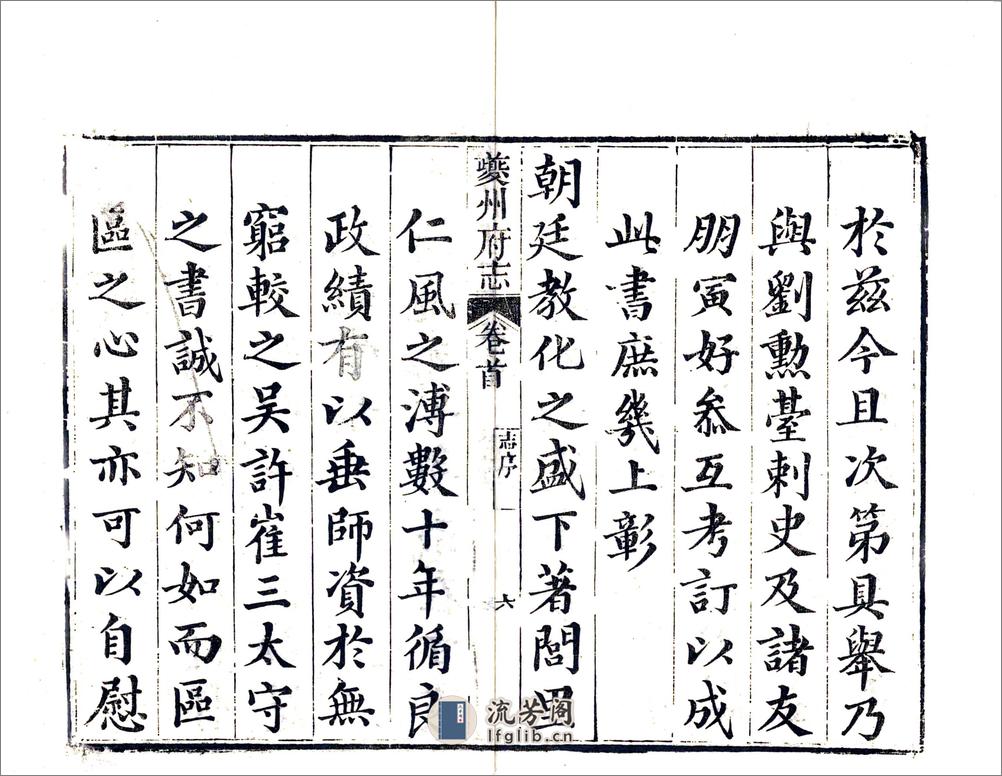 於茲今且次第具舉乃
與劉勲臺刺史及諸友
朋寅好叅互考訂以成
此書庶幾上彰
朝廷教化之盛下著閭里
夔州府志 卷首 志序 一 六
仁風之溥數十年循良
政績有以垂師資於無
窮較之吴許崔三太守
之書誠不知何如而區
區之心其亦可以自慰
流芳阁
lfglib.cn